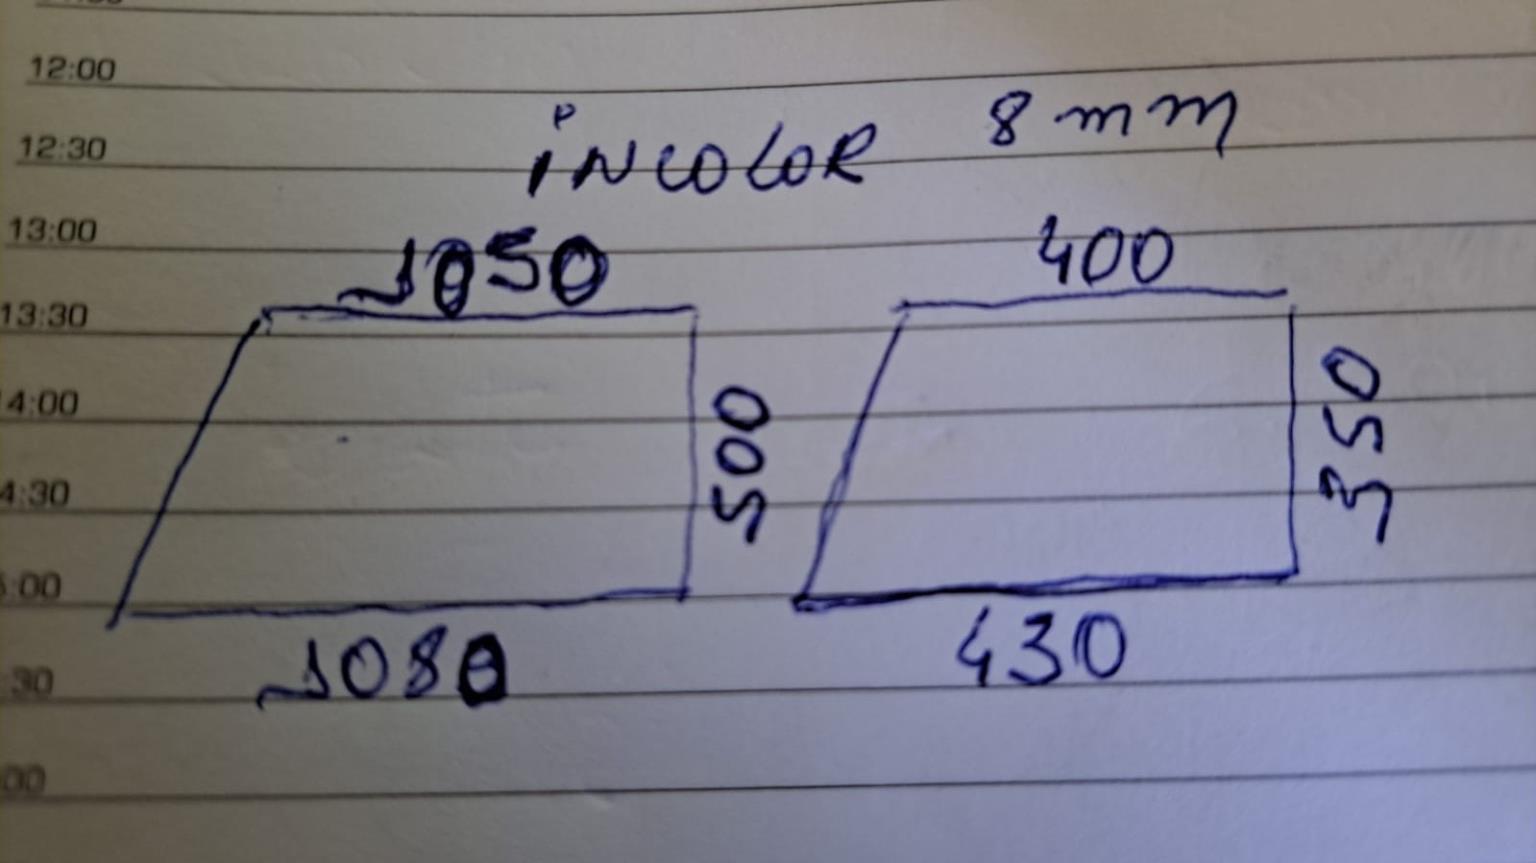 12:00
12:30
incolor 8 mm
13:00
1050 400
13:30
4:00
500 350
4:30
:00
1080 430
:30
00